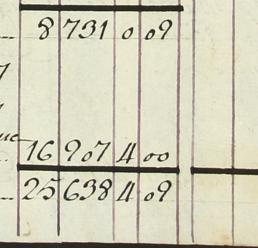 8 731 0 09
16 907 4 00
25 638 4 09